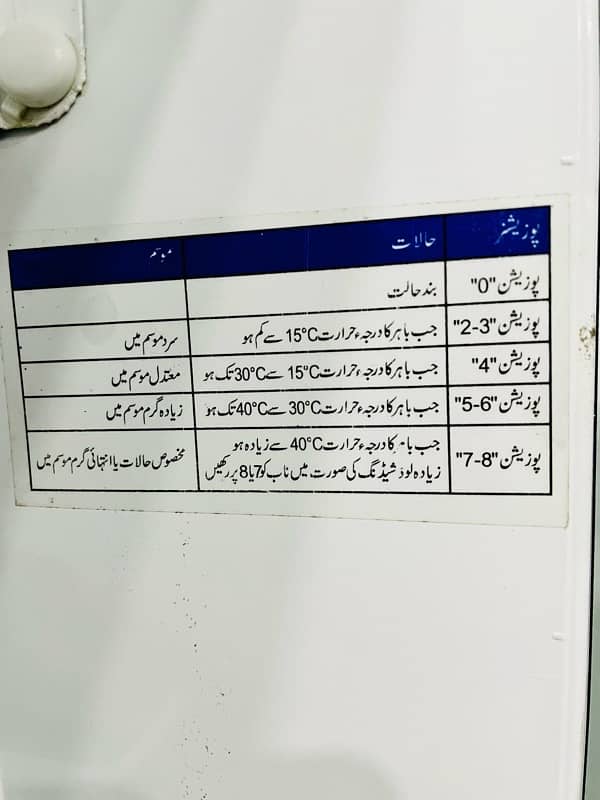 پوزیشنز حالات موسم
پوزیشن "0" بند حالت
پوزیشن "2-3" جب باہر کا درجہء حرارت 15°C سے کم ہو سرد موسم میں
پوزیشن "4" جب باہر کا درجہء حرارت 15°C سے 30°C تک ہو معتدل موسم میں
پوزیشن "5-6" جب باہر کا درجہء حرارت 30°C سے 40°C تک ہو زیادہ گرم موسم میں
پوزیشن "7-8" جب باہر کا درجہء حرارت 40°C سے زیادہ ہو مخصوص حالات یا انتہائی گرم موسم میں
زیادہ لوڈ شیڈنگ کی صورت میں ناب کو 7 یا 8 پر رکھیں